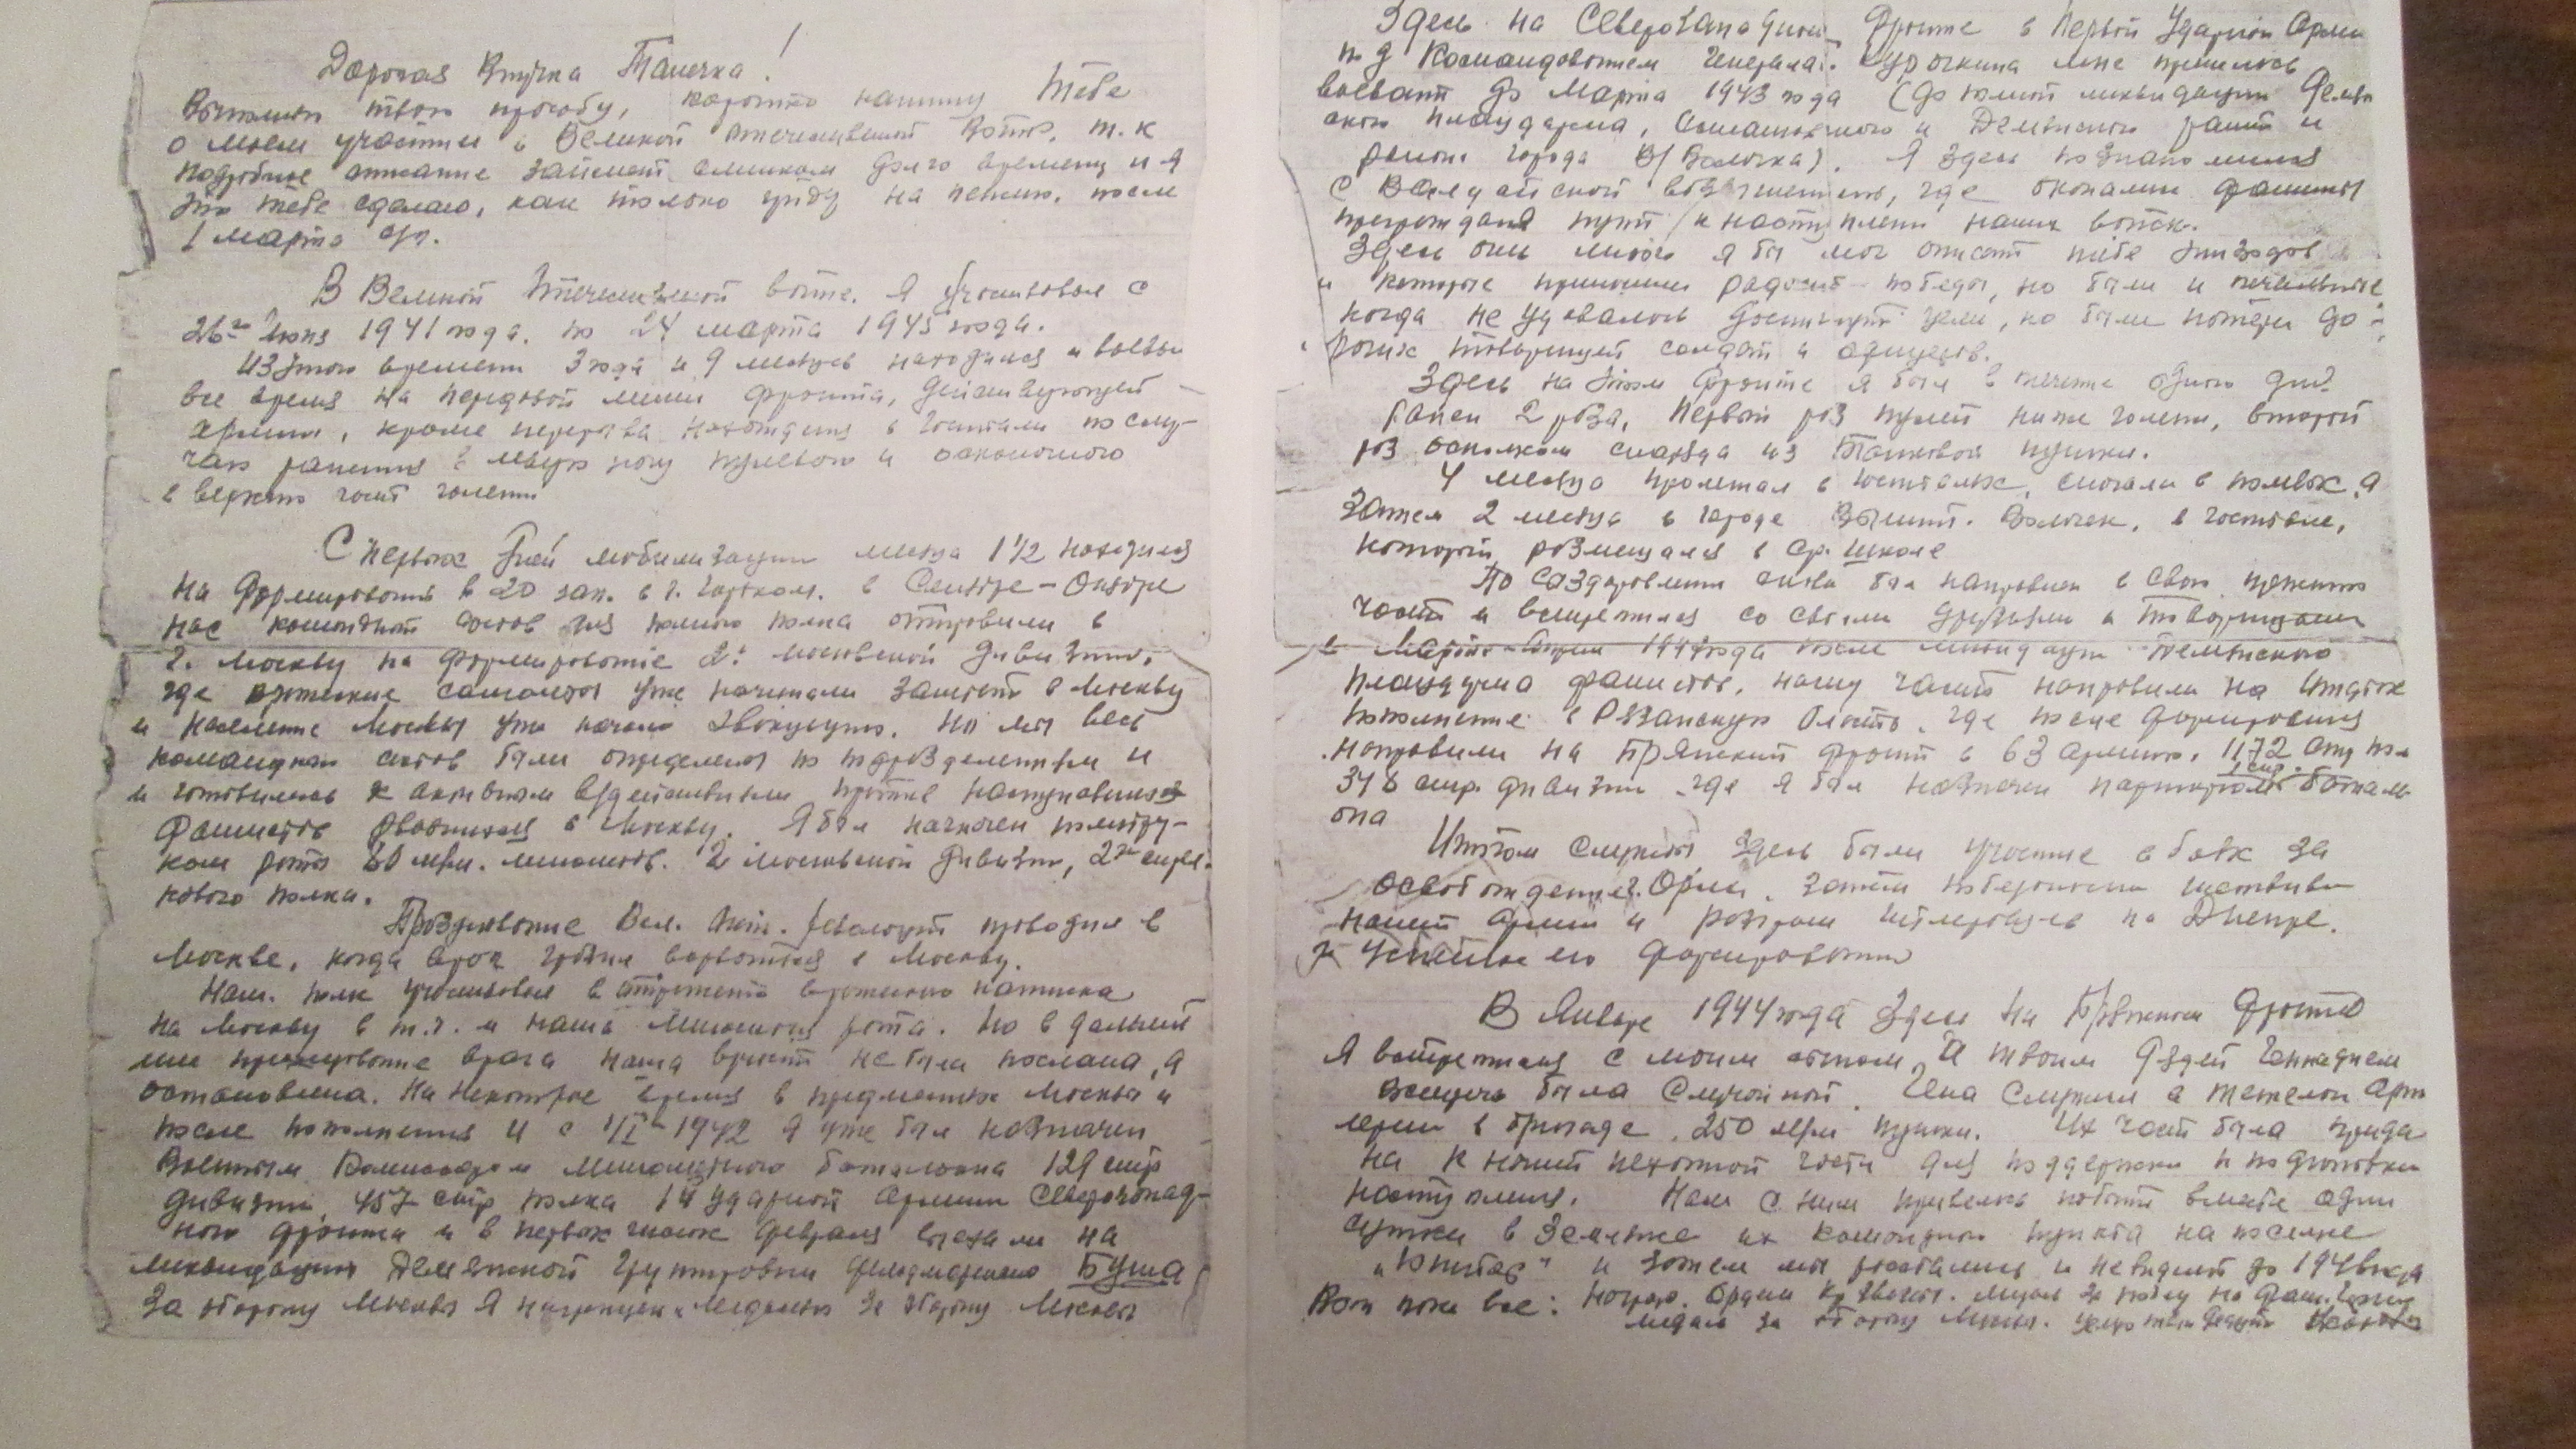 Дорогая Внучка Танечка!
Выполняю твою просьбу, коротко напишу тебе
о моем участии в Великой отечественной войне, т.к
подробное описание займет слишком долго времени и я
это тебе сделаю, как только уйду на пенсию. после
1 марта
В Великой Отечественной войне. Я участвовал с
26го июня 1941 года. по 24 марта 1945 года.
Из этого времени 3 года и 9 месяцев находился и воевал
все время на передовой линии фронта, действующей
армии, кроме перерыва нахождения в госпитале по слу-
чаю ранения в левую ногу пулевого и осколочного
в верхнюю часть голени
С первых дней мобилизации месяца 1 1/2 находился
на формировании в 20 зап. в г. в Сентябре - Октябре
нас командный состав для полка отправили в
г. Москву на формирование 2й московской дивизии.
где вражеские самолеты уже начинали залетать в Москву
и население Москвы уже начало эвакуацию. Но мы весь
командный состав были определены по подразделениям и
и готовились к активным действиям против наступавших
фашистов рвавшихся в Москву. Я был назначен политру-
ком роты мм. минометов. 2 Московской дивизии, 2го стрел-
кового полка.
Празднование Вел. Окт. революции проводил в
Москве, когда враг грозил ворваться в Москву.
Наш. полк участвовал в отражении вражеского натиска
на Москву в т.ч. и наша Минометная рота. Но в дальней
шие преследование врага наша часть не была послана, а
остановлена. На некоторое время в предместьях Москвы и
после пополнения И с 1/I-1942 Я уже был назначен
Военным Комиссаром Минометного батальона 129 стр
дивизии, 457 стр полка 1й Ударной Армии Северозапад-
ного фронта и в первых числах февраля выехали на
ликвидацию Демянской группировки фельдмаршала Буша
За оборону Москвы Я награжден Медалью За оборону Москвы
Здесь на Северозападном фронте в Первой Ударной Армии
под Командованием Генерала Курочкина мне пришлось
воевать до Марта 1943 года (до полной ликвидации Демян
ского плацдарма, и Демянского района и
района города В/Волочка). Я здесь познакомился
с Валдайской возвышенностью, где окопались фашисты
преграждая путь к наступлению наших войск.
Здесь очень много я бы мог описать тебе эпизодов
и которые приносили радость победы, но были и печальные
когда не удавалось достигнуть цели, но были потери до-
рогих товарищей солдат и офицеров.
Здесь на этом фронте я был в течение одного дня
ранен 2 раза, Первый раз пулей ниже голени, второй
раз осколком снаряда из Танковой пушки.
4 месяца пролежал в госпиталях, сначала в полевых, а
Затем 2 месяца в городе Вышний. Волочек, в госпитале,
который размещался в ср. школе
По выздоровлении снова был направлен в свою прежнюю
часть и встретился со своими друзьями и товарищами
в Марте-Апреле года после ликвидации Демянского
плацдарма фашистов, нашу часть направили на отдых
пополнение в Рязанскую Область, где после формирования
направили на Брянский фронт в 63 армию, 1172 стр полк
348 стр. дивизии где я был назначен парторгом стр. баталь
она
Итогом службы здесь были участие в боях за
освобождение г. Орла, Затем победоносное шествие
нашей армии и разгром гитлеровцев на Днепре.
и успешное его форсирование
В Январе 1944 года Здесь на Брянском фронте
Я встретился с моим сыном, а твоим дядей Геннадием
Встреча была Случайной. Гена Служил в тяжелой арт
лерии в бригаде, 250 мм пушки. Их часть была прида
на к нашей пехотной части для поддержки и подготовки
наступления. Нам с ним привелось побыть вместе одни
сутки в Землянке их командного пункта на поселке
и затем мы расстались и не виделись до 194 года
Вот пока все: Награды. Орден Кр Звезды. Медаль За победу на Фаш. Германией
медаль за оборону Москвы.